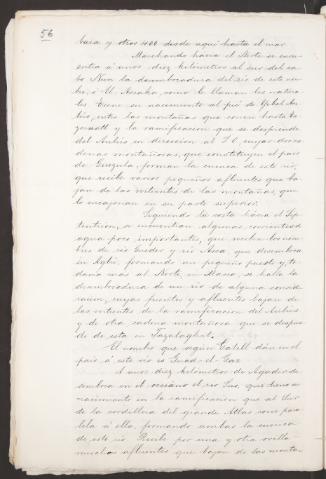 56
y otros 400 desde aquí hasta el mar
Marchando hacia el Norte se encu-
entra á unos diez kilómetros al sur del ca-
bo Nun la desembocadura del río de este nom-
bre, ó El Assaka, como le llaman los natura-
les. Tiene su nacimiento al pié de Gebel
entre las montañas que
y la ramificación que se desprende
del en dirección al S.O., cuyas dos ca-
denas montañosas, que constituyen el país
de Guezula, forman la cuenca de este río,
que recibe varios pequeños afluentes que ba-
jan de las vertientes de las montañas, que
lo encajonan en su parte superior.
Siguiendo la costa hácia el Sep-
tentrion, se encuentran algunas corrientes de
agua poco importantes, que reciben los nom-
bres de río y río que desemboca
en formando un pequeño puerto y, to-
davía más al Norte, en Massa, se halla la
desembocadura de un río de alguna consid-
eracion, cuyas fuentes y afluentes bajan de
las vertientes de la ramificación del
y de otra cadena montañosa que se despren-
de de esta en
El nombre que según dan en el
país á este río es Guad-el-Gaz
A unos diez kilómetros de Agadir de-
semboca en el occéano el río Sus, que tiene su
nacimiento en la ramificación que al Sur
de la cordillera del grande Atlas corre para-
lela á ella, formando ambas la cuenca
de este río. Recibe por una y otra orilla
muchos afluentes que bajan de las monta-